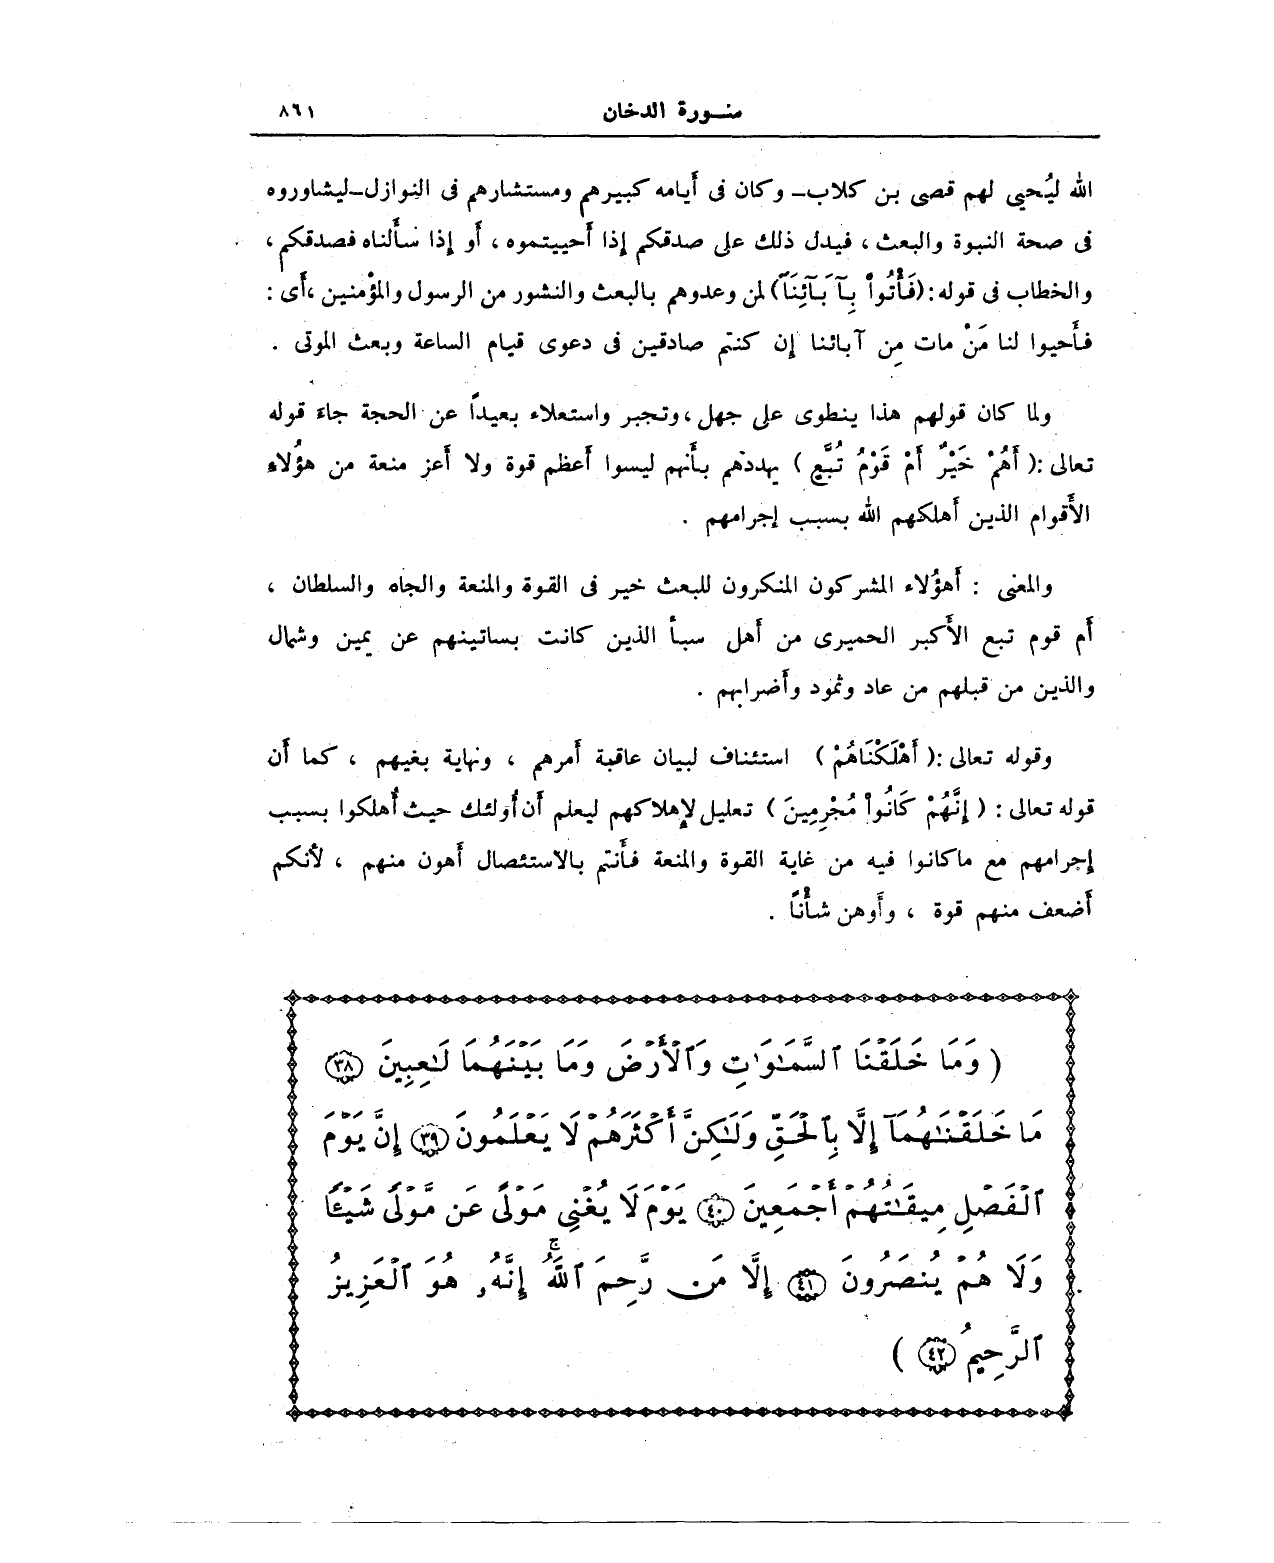 سورة الدخان ٨٦١
الله ليُحيى لهم قصى بن كلاب ــ وكان فى أيامه كبيرهم ومستشارهم فى النوازل ــ ليشاوروه
فى صحة النبوة والبعث ، فيدل ذلك على صدقكم إذا أحييتموه ، أو إذا سألناه فصدقكم ،
والخطاب فى قوله : (فَأْتُواْ بِآ بَآئِنَآ) لمن وعدوهم بالبعث والنشور من الرسول والمؤمنين ،أى :
فأحيوا لنا مَنْ مات مِن آبائنا إن كنتم صادقين فى دعوى قيام الساعة وبعث الموتى .
ولما كان قولهم هذا ينطوى على جهل ،وتجبر واستعلاء بعيداً عن الحجة جاءَ قوله
تعالى :( أَهُمْ خَيْرٌ أَمْ قَوْمُ تُبَّعٍ ) يهددهم بأنهم ليسوا أعظم قوة ولا أعز منعة من هؤُلاء
الأَقوام الذين أهلكهم الله بسبب إجرامهم .
والمعنى : أهؤُلاء المشركون المنكرون للبعث خير فى القوة والمنعة والجاه والسلطان ،
أم قوم تبع الأَكبر الحميرى من أهل سبأ الذين كانت بساتينهم عن يمين وشمال
والذين من قبلهم من عاد وثمود وأضرابهم .
وقوله تعالى :( أَهْلَكْنَاهُمْ ) استئناف لبيان عاقبة أمرهم ، ونهاية بغيهم ، كما أن
قوله تعالى : ( إِنَّهُمْ كَانُواْ مُجْرِمِينَ ) تعليل لإهلاكهم ليعلم أن أولئك حيث أُهلكوا بسبب
إجرامهم مع ماكانوا فيه من غاية القوة والمنعة فأنتم بالاستئصال أهون منهم ، لأنكم
أضعف منهم قوة ، وأوهن شأْناً .
( وَمَا خَلَقْنَا ٱلسَّمَـٰوَٰتِ وَٱلْأَرْضَ وَمَا بَيْنَهُمَا لَـٰعِبِينَ ٣٨
مَا خَلَقْنَـٰهُمَآ إِلَّا بِٱلْحَقِّ وَلَـٰكِنَّ أَكْثَرَهُمْ لَا يَعْلَمُونَ ٣٩ إِنَّ يَوْمَ
ٱلْفَصْلِ مِيقَـٰتُهُمْ أَجْمَعِينَ ٤٠ يَوْمَ لَا يُغْنِى مَوْلًى عَن مَّوْلًى شَيْـًٔا
وَلَا هُمْ يُنصَرُونَ ٤١ إِلَّا مَن رَّحِمَ ٱللَّهُ ۚ إِنَّهُۥ هُوَ ٱلْعَزِيزُ
ٱلرَّحِيمُ ٤٢ )